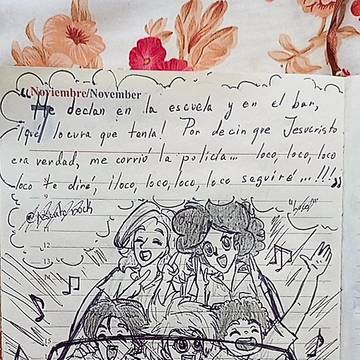 Noviembre/November
"Me decían en la escuela y en el bar,
¡qué locura que tenía! Por decir que Jesucristo
era verdad, me corrió la policía... loco, loco, loco
loco te diré, ¡loco, loco, loco, loco seguiré...!!!"
"Loco"
12
13
14
15